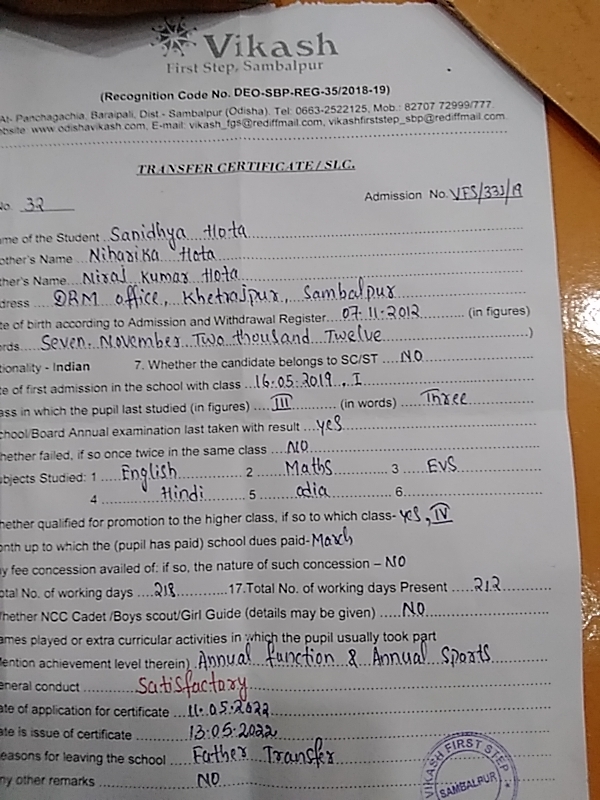 Vikash
First Step, Sambalpur
(Recognition Code No. DEO-SBP-REG-35/2018-19)
At- Panchagachia, Baraipali, Dist - Sambalpur (Odisha). Tel: 0663-2522125, Mob.: 82707 72999/777.
bsite: www.odishavikash.com, E-mail: vikash_fgs@rediffmail.com, vikashfirststep_sbp@rediffmail.com
TRANSFER CERTIFICATE / SLC.
No. 32 Admission No. VFS/333/19
me of the Student Sanidhya Hota
other's Name Niharika Hota
ther's Name Niraj Kumar Hota
dress DRM office, Khetrajpur, Sambalpur
te of birth according to Admission and Withdrawal Register 07.11.2012 (in figures)
rds Seven. November Two thousand Twelve )
tionality - Indian 7. Whether the candidate belongs to SC/ST NO
te of first admission in the school with class 16.05.2019, I
ass in which the pupil last studied (in figures) III (in words) Three
chool/Board Annual examination last taken with result yes
hether failed, if so once twice in the same class NO
bjects Studied: 1 English 2 Maths 3 EVS
4 Hindi 5 odia 6.
hether qualified for promotion to the higher class, if so to which class- yes, IV
onth up to which the (pupil has paid) school dues paid- March
y fee concession availed of: if so, the nature of such concession – NO
otal No. of working days 218 17.Total No. of working days Present 212
hether NCC Cadet /Boys scout/Girl Guide (details may be given) NO
ames played or extra curricular activities in which the pupil usually took part
ention achievement level therein) Annual function & Annual Sports
eneral conduct Satisfactory
ate of application for certificate 11.05.2022
ate is issue of certificate 13.05.2022
easons for leaving the school Father Transfer
ny other remarks NO
VIKASH FIRST STEP
SAMBALPUR